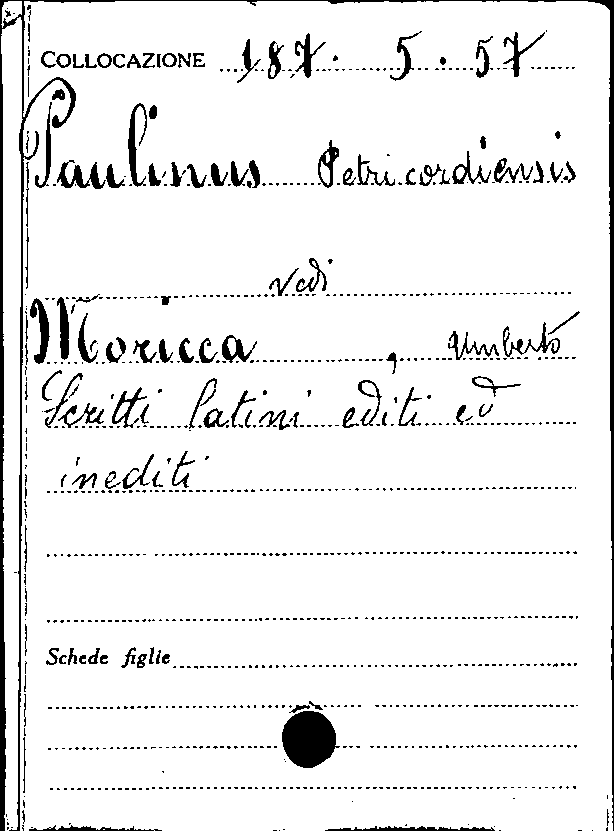 COLLOCAZIONE 187. 5. 57
Paulinus Petricordiensis
vedi
Moricca, Umberto
Scritti latini editi ed
inediti
Schede figlie